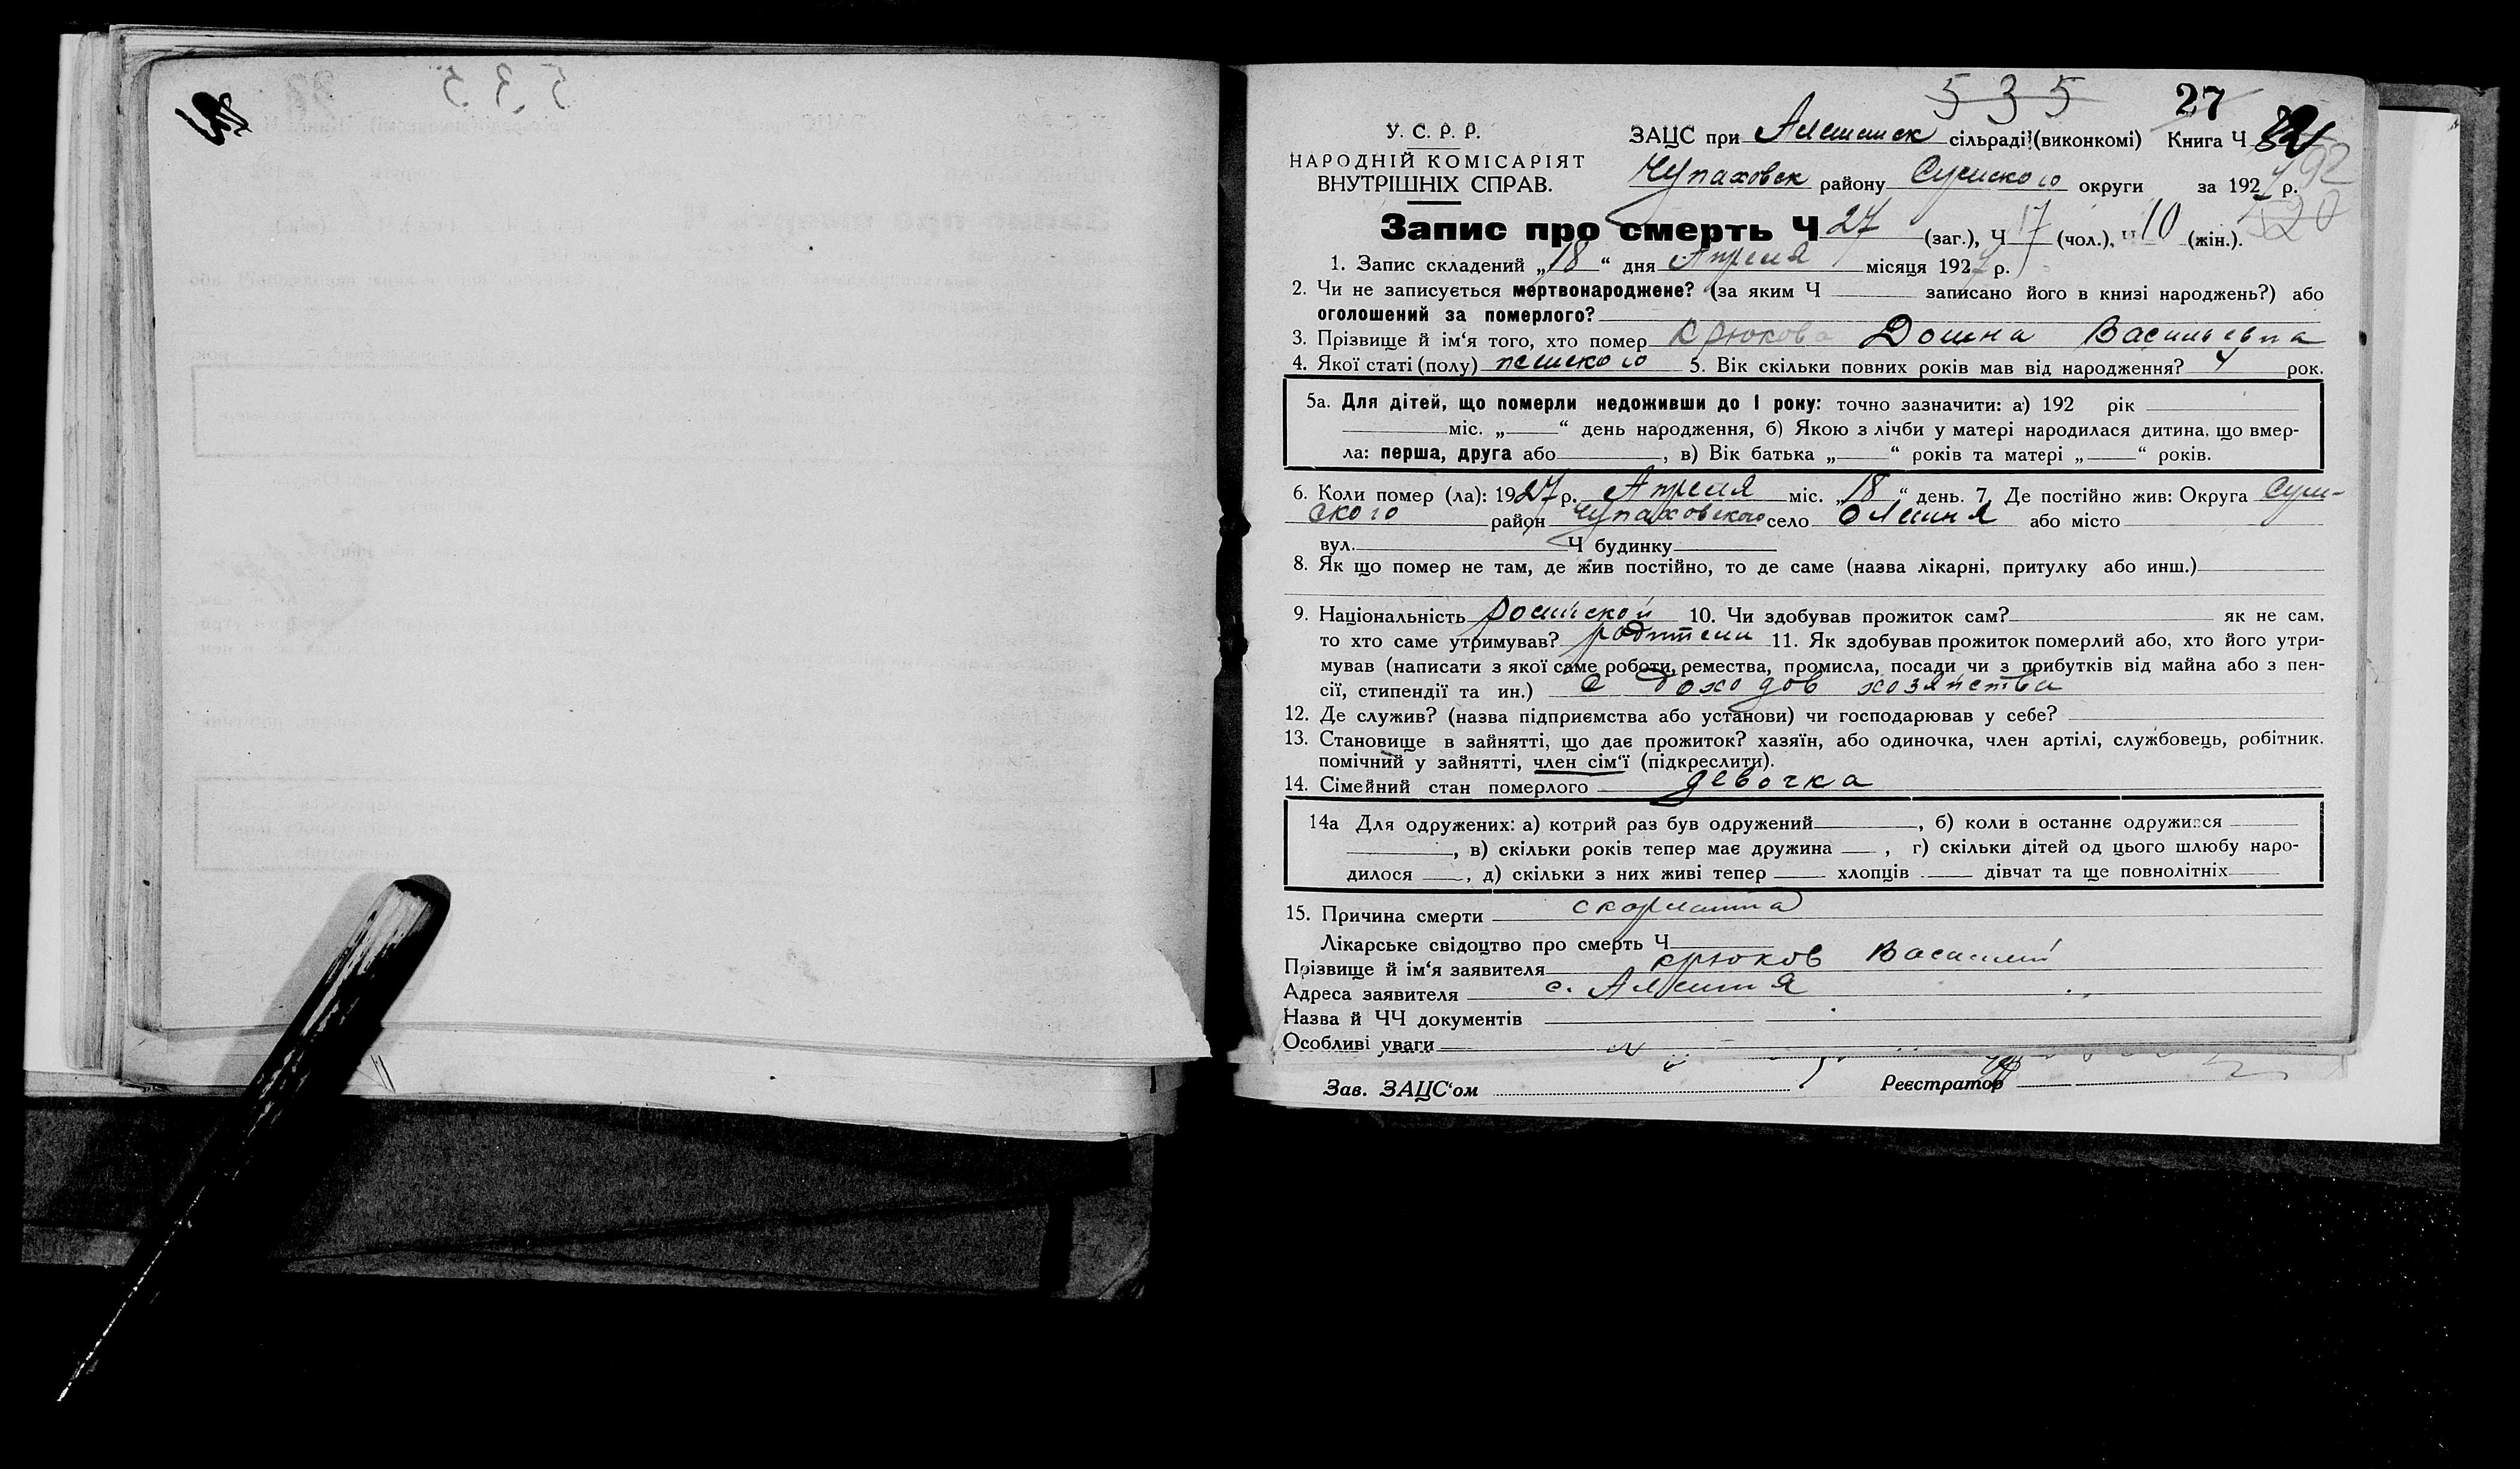 5 3 5
27
У. С. Р. Р.
НАРОДНІЙ КОМІСАРІЯТ
ВНУТРІШНІХ СПРАВ.
ЗАЦС при Алешинск сільраді (виконкомі) Книга Ч
Чупаховск району Сумского округи за 1927 р.
520
Запис про смерть Ч 27 (заг.), Ч 17 (чол.), Ч 10 (жін.).
1. Запис складений „18“ дня Апреля місяця 1927 р.
2. Чи не записується мертвонароджене? (за яким Ч записано його в книзі народжень?) або
оголошений за померлого?
3. Прізвище й ім'я того, хто помер Крюкова Домна Васильевна
4. Якої статі (полу) женского 5. Вік скільки повних років мав від народження? 4 рок.
5а. Для дітей, що померли недоживши до 1 року: точно зазначити: а) 192 рік
міс. „ “ день народження, б) Якою з лічби у матері народилася дитина, що вмер-
ла: перша, друга або , в) Вік батька „ “ років та матері „ “ років.
6. Коли помер (ла): 1927 р. Апреля міс. „18“ день. 7. Де постійно жив: Округа Сум-
ского район Чупаховского село Олешня або місто
вул. Ч будинку
8. Як що помер не там, де жив постійно, то де саме (назва лікарні, притулку або инш.)
9. Національність росийской 10. Чи здобував прожиток сам? як не сам,
то хто саме утримував? родители 11. Як здобував прожиток померлий або, хто його утри-
мував (написати з якої саме роботи, ремества, промисла, посади чи з прибутків від майна або з пен-
сії, стипендії та ин.) с доходов хозяйства
12. Де служив? (назва підприємства або установи) чи господарював у себе?
13. Становище в зайнятті, що дає прожиток? хазяїн, або одиночка, член артілі, службовець, робітник.
помічний у зайнятті, член сім'ї (підкреслити).
14. Сімейний стан померлого девочка
14а Для одружених: а) котрий раз був одружений , б) коли в останнє одружився
, в) скільки років тепер має дружина , г) скільки дітей од цього шлюбу наро-
дилося , д) скільки з них живі тепер хлопців дівчат та ще повнолітніх
15. Причина смерти скорлатина
Лікарське свідоцтво про смерть Ч
Прізвище й ім'я заявителя Крюков Василий
Адреса заявителя с. Алешня
Назва й ЧЧ документів
Особливі уваги
Зав. ЗАЦС'ом Реєстратор